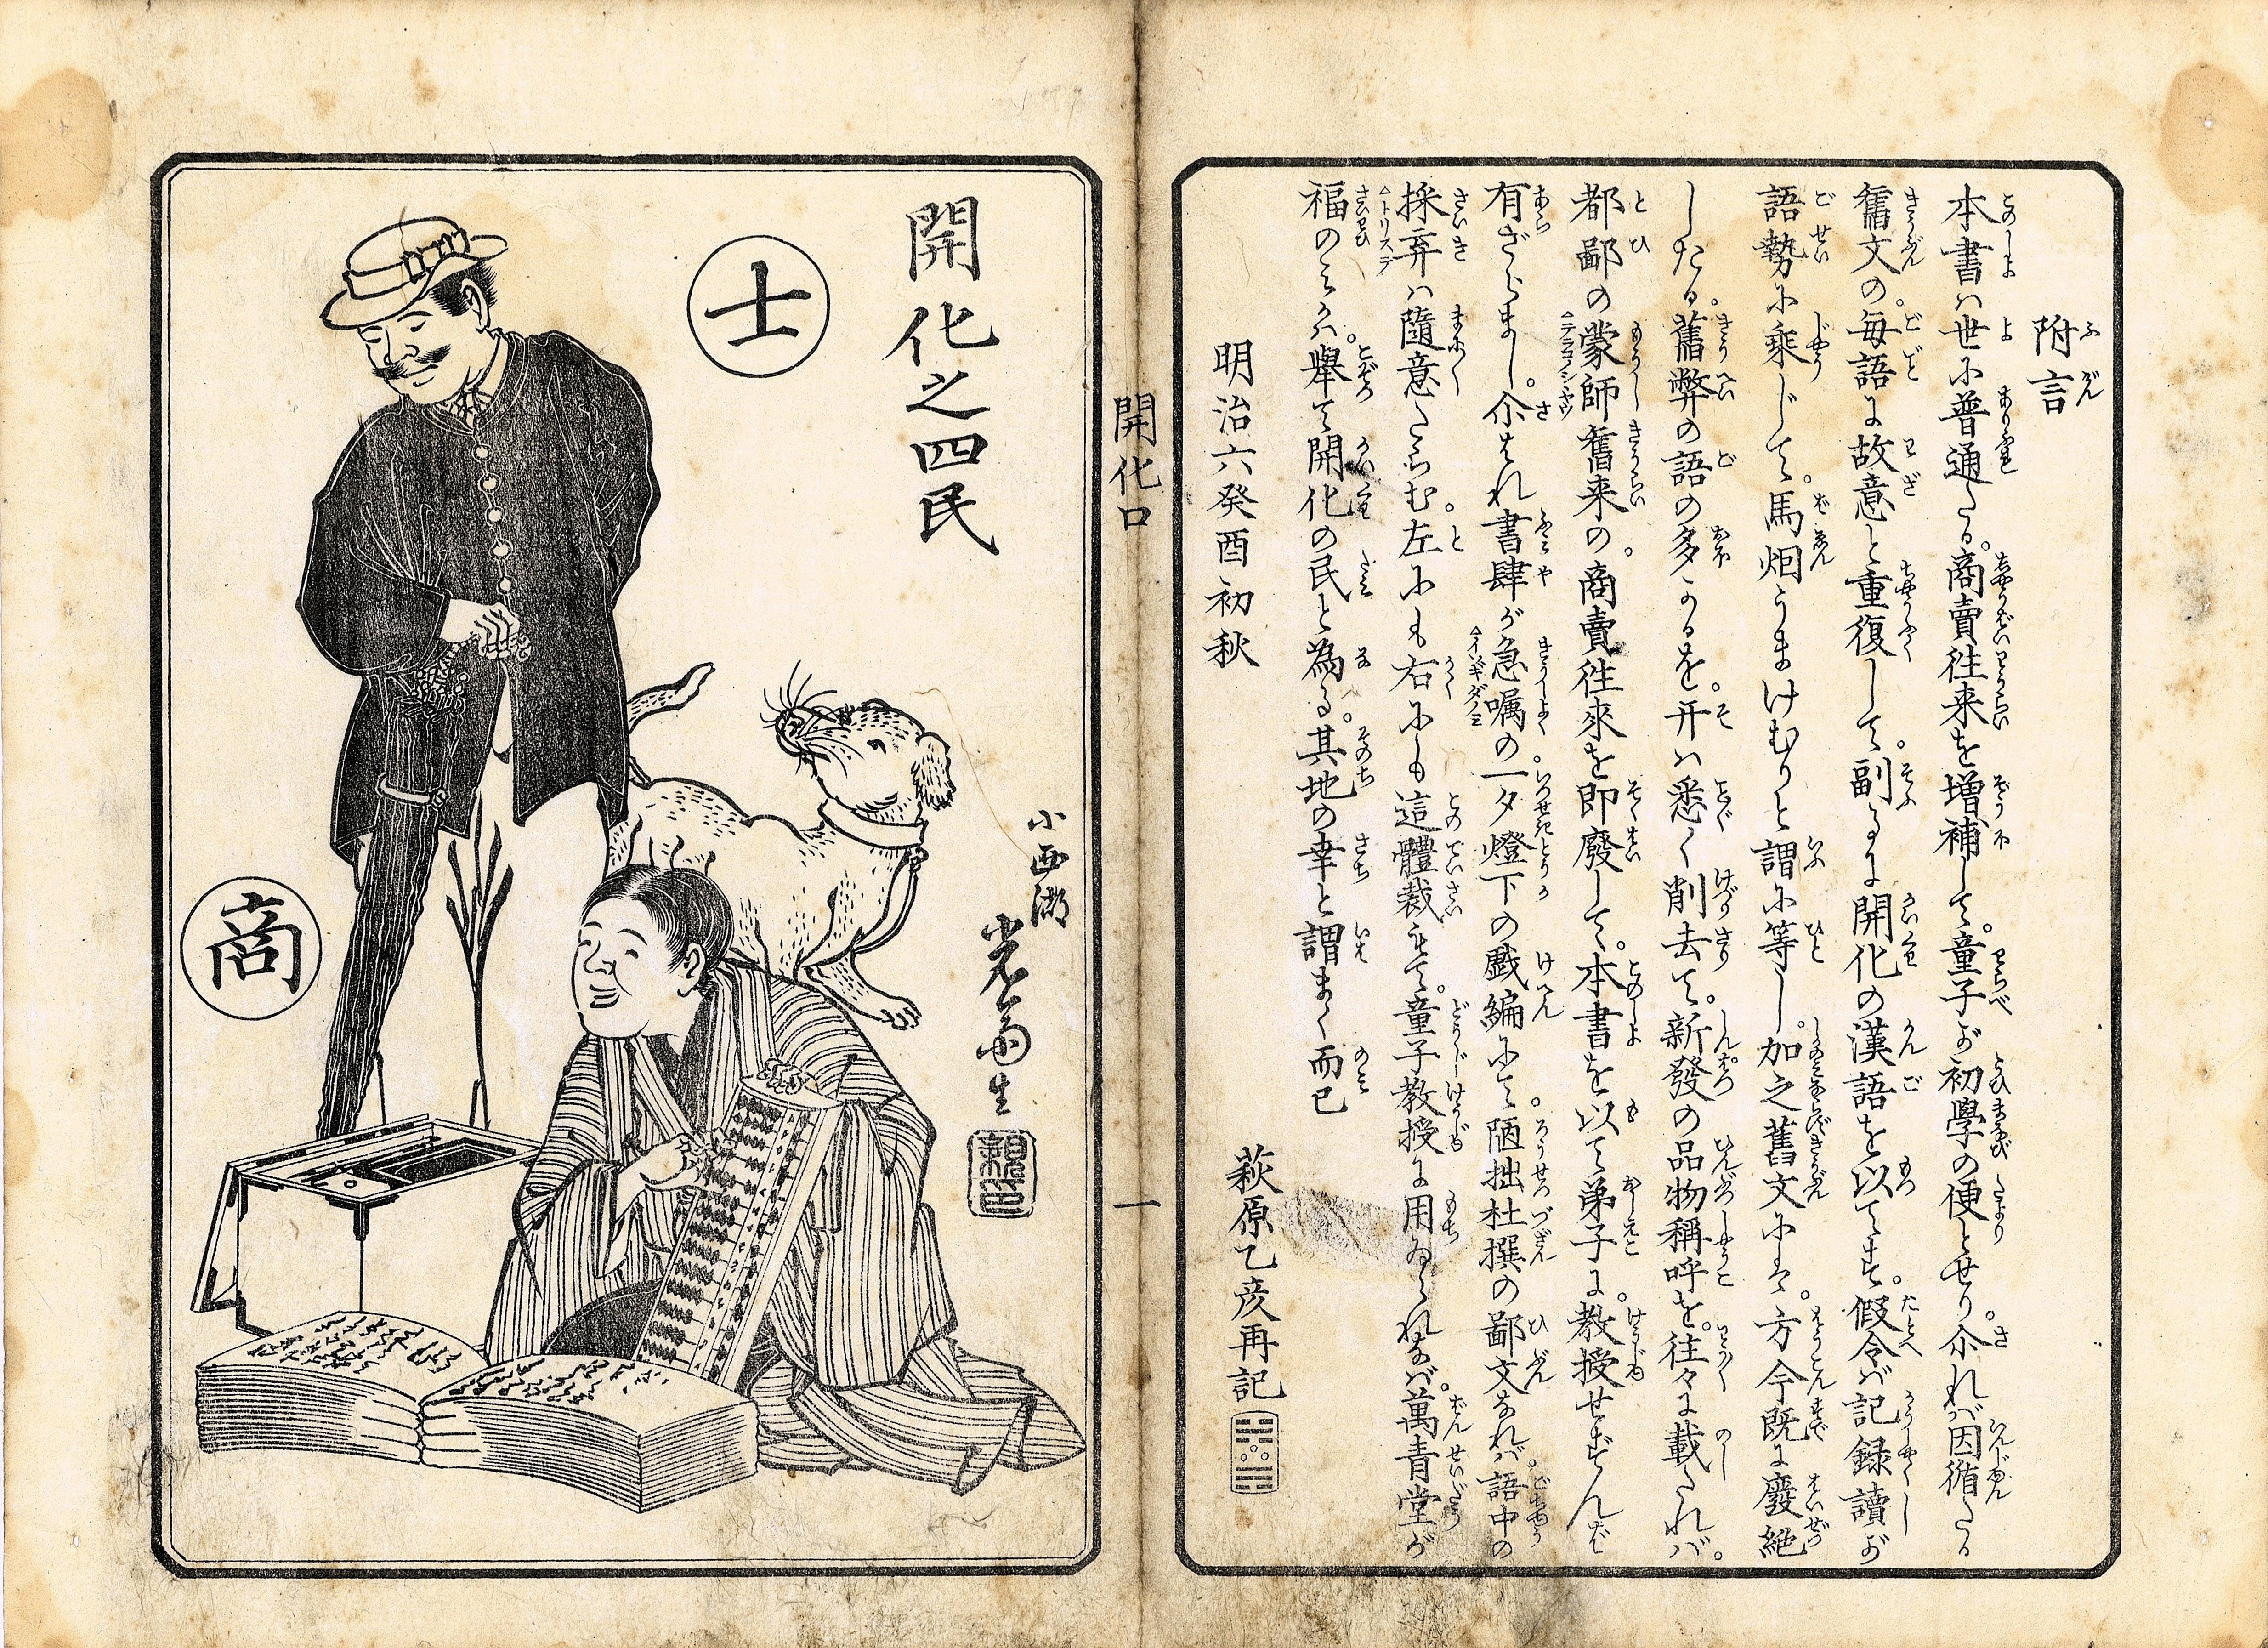 附言
本書ハ世に普通たる。商賣徃来を増補して。童子が初學の便とせり。尒れバ因循たる
舊文の。毎語に故意と重復して。副るに開化の漢語を以てす。假令バ記録讀が
語勢に乘じて。馬烟うまけむりと謂に等し。加之舊文にハ。方今既に廢絶
したる。舊弊の語の多かるを。开ハ悉く削去て。新發の品物稱呼を。往々に載たれバ。
都鄙の蒙師舊来の。商賣徃來を即廢して。本書を以て弟子に。教授せずんば
有ざらまし。尒はれ書肆が急嘱の。一夕燈下の戯編にて。陋拙杜撰の鄙文なれバ。語中の
採弃ハ隨意たらむ。左にも右にも這體裁もて。童子教授に用ゐられなバ。萬青堂が
福のミかハ。舉て開化の民と為る。其地の幸と謂まく而已
明治六癸酉初秋
萩原乙彦再記
開化口
一
開化之四民
士
商
小西湖